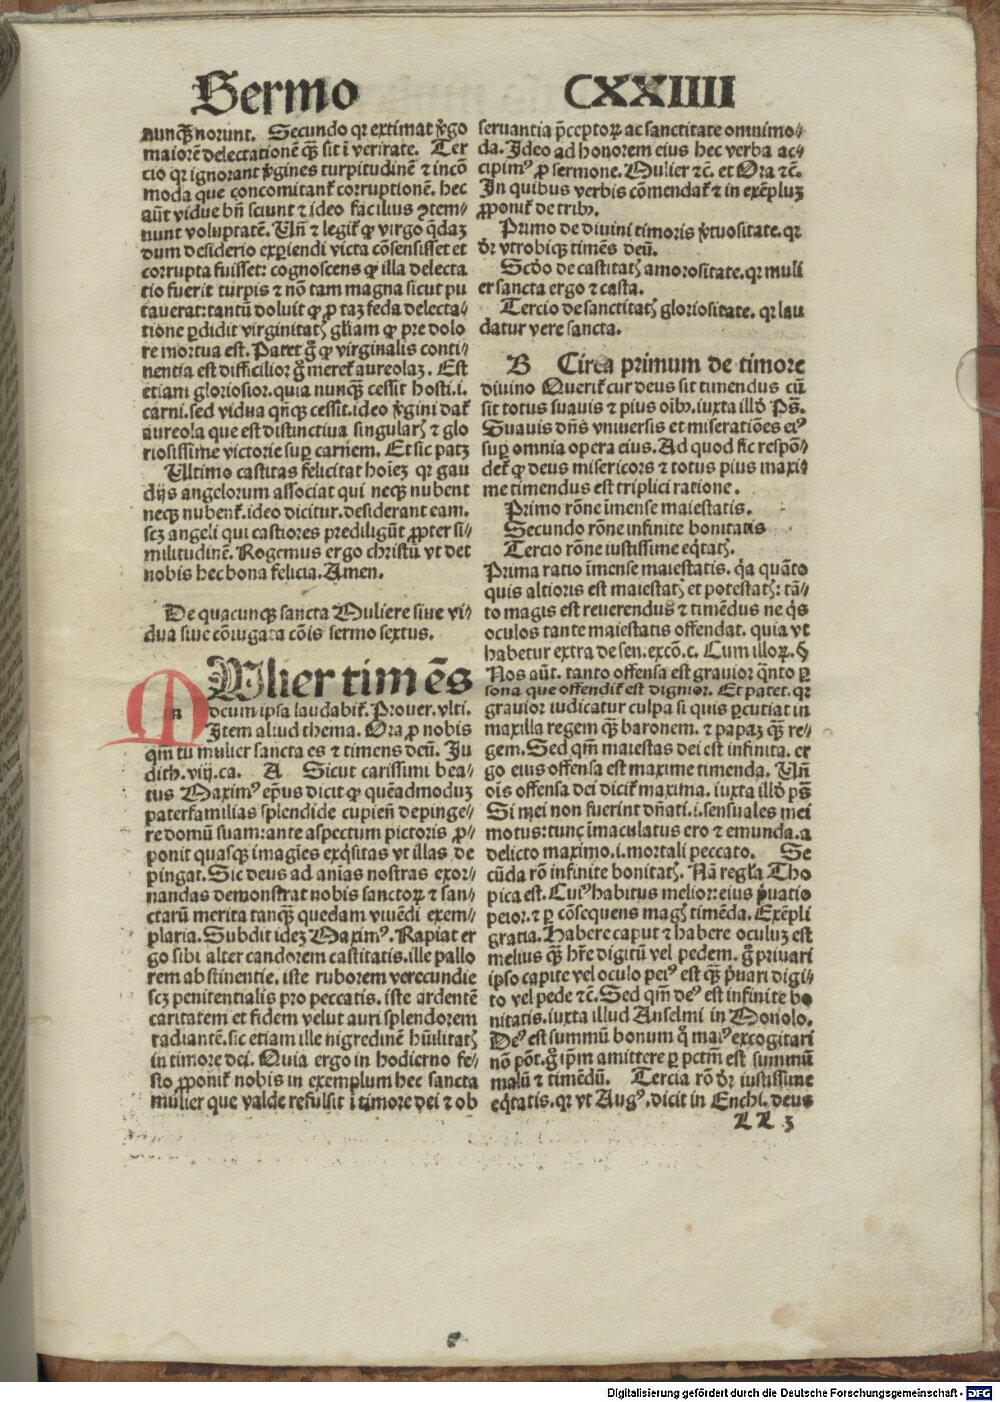 Sermo CXXIIII
nunqȝ norunt. Secundo qr extimat v̾go
maiorē delectationē qȝ sit ī veritate. Ter
cio qr ignorant v̾gines turpitudinē ⁊ incō
moda que concomitant̄ corruptionē. hec
aūt vidue bn̄ sciunt ⁊ ideo facilius ꝯtem-/
nunt voluptatē. Vn̄ ⁊ legit̄ ꝙ virgo q̄daȝ
dum desiderio exp̱iendi victa cōsensisset et
corrupta fuisset: cognoscens ꝙ illa delecta
tio fuerit turpis ⁊ nō tam magna sicut pu
tauerat: tantū doluit ꝙ ꝓ taȝ feda delecta-/
tione p̱didit virginitatꝭ gl̄iam ꝙ pre dolo
re mortua est. Patet g̊ ꝙ virginalis conti-/
nentia est difficilior g̊ meret̄ aureolaȝ. Est
etiam gloriosior. quia nunqȝ cessit hosti .i.
carni. sed vidua qn̄qȝ cessit. ideo v̾gini dat̄
aureola que est distinctiua singularꝭ ⁊ glo
riosissime victorie sup̱ carnem. Et sic patȝ
Ultimo castitas felicitat hoīeȝ qr gau
dijs angelorum associat qui neqȝ nubent
neqȝ nubent̄. ideo dicitur. desiderant eam.
scȝ angeli qui castiores prediligūt ꝓpter si-/
militudinē. Rogemus ergo christū vt det
nobis hec bona felicia. Amen.
De quacunqȝ sancta Muliere siue vi-/
dua siue cōiugata cōis sermo sextus.
Mulier timēs
dcum ipsa laudabit̄. Prouer. vlti.
Item aliud thema. Ora ꝓ nobis
qm̄ tu mulier sancta es ⁊ timens deū. Ju
dith. viij. ca. A Sicut carissimi bea-/
tus Maximꝰ ep̄us dicit ꝙ quēadmoduȝ
paterfamilias splendide cupien̄ depinge-/
re domū suam: ante aspectum pictoris ꝓ-/
ponit quasqȝ imagīes exq̄sitas vt illas de
pingat. Sic deus ad anias nostras exor-/
nandas demonstrat nobis sanctoꝝ ⁊ san-/
ctarū merita tanqȝ quedam viuēdi exem-/
plaria. Subdit ideȝ Maximꝰ. Rapiat er
go sibi alter candorem castitatis. ille pallo
rem abstinentie. iste ruborem verecundie
scȝ penitentialis pro peccatis. iste ardentē
caritatem et fidem velut auri splendorem
radiantē. sic etiam ille nigredinē hūilitatꝭ
in timore dei. Quia ergo in hodierno fe-/
sto ꝓponit̄ nobis in exemplum hec sancta
mulier que valde refulsit ī timore dei ⁊ ob
seruantia p̄ceptoꝝ ac sanctitate omnimo-/
da. Ideo ad honorem eius hec verba ac-/
cipimꝰ ꝓ sermone. Mulier ⁊c̄. et Ora ⁊c̄.
In quibus verbis cōmendat̄ ⁊ in exēpluȝ
ꝓponit̄ de tribꝰ.
Primo de diuini timoris v̾tuositate. qr
dr̄ vtrobiqȝ timēs deū.
Scdo de castitatꝭ amorositate. qr muli
er sancta ergo ⁊ casta.
Tercio de sanctitatꝭ gloriositate. qr lau
datur vere sancta.
B Circa primum de timore
diuino Querit̄ cur deus sit timendus cū
sit totus suauis ⁊ pius oībꝰ. iuxta illḋ Ps̄.
Suauis dn̄s vniuersis et miseratiōes eiꝰ
sup̱ omnia opera eius. Ad quod sic respō-/
det̄ ꝙ deus misericors ⁊ totus pius maxi-/
me timendus est triplici ratione.
Primo rōne īmense maiestatis.
Secundo rōne infinite bonitatis
Tercio rōne iustissime eq̄tatꝭ.
Prima ratio īmense maiestatis. q̄a quāto
quis altioris est maiestatꝭ et potestatꝭ: tā-/
to magis est reuerendus ⁊ timēdus ne q̄s
oculos tante maiestatis offendat. quia vt
habetur extra de sen. excō. c. Cum illoꝝ. §
Nos aūt. tanto offensa est grauior q̄nto p̱
sona que offendit̄ est dignior. Et patet. qr
grauior iudicatur culpa si quis p̱cutiat in
maxilla regem qȝ baronem. ⁊ papaȝ qȝ re-/
gem. Sed qm̄ maiestas dei est infinita. er
go eius offensa est maxime timenda. Vn̄
oīs offensa dei dicit̄ maxima. iuxta illḋ ps̄
Si mei non fuerint dn̄ati .i. sensuales mei
motus: tunc īmaculatus ero ⁊ emunda. a
delicto maximo .i. mortali peccato. Se
cūda rō infinite bonitatꝭ. Nā regl̄a Tho
pica est. Cuiꝰ habitus melior: eius p̄uatio
peior. ⁊ p̱ cōsequens magꝭ timēda. Exēpli
gratia. Habere caput ⁊ habere oculuȝ est
melius qȝ hr̄e digitū vel pedem. g̊ priuari
ipso capite vel oculo peiꝰ est qȝ p̄uari digi-/
to vel pede ⁊c̄. Sed qm̄ deꝰ est infinite bo
nitatis. iuxta illud Anselmi in Monolo.
Deꝰ est summū bonum q̊ maiꝰ excogitari
nō pōt. g̊ ip̄m amittere p̱ pctm̄ est summū
malū ⁊ timēdū. Tercia rō dr̄ iustissime
eq̄tatis. qr vt Augꝰ. dicit in Enchi. deus
LL 3
Digitalisierung gefördert durch die Deutsche Forschungsgemeinschaft - DFG